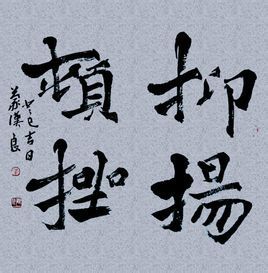 抑揚
頓挫
癸巳吉日
漢良